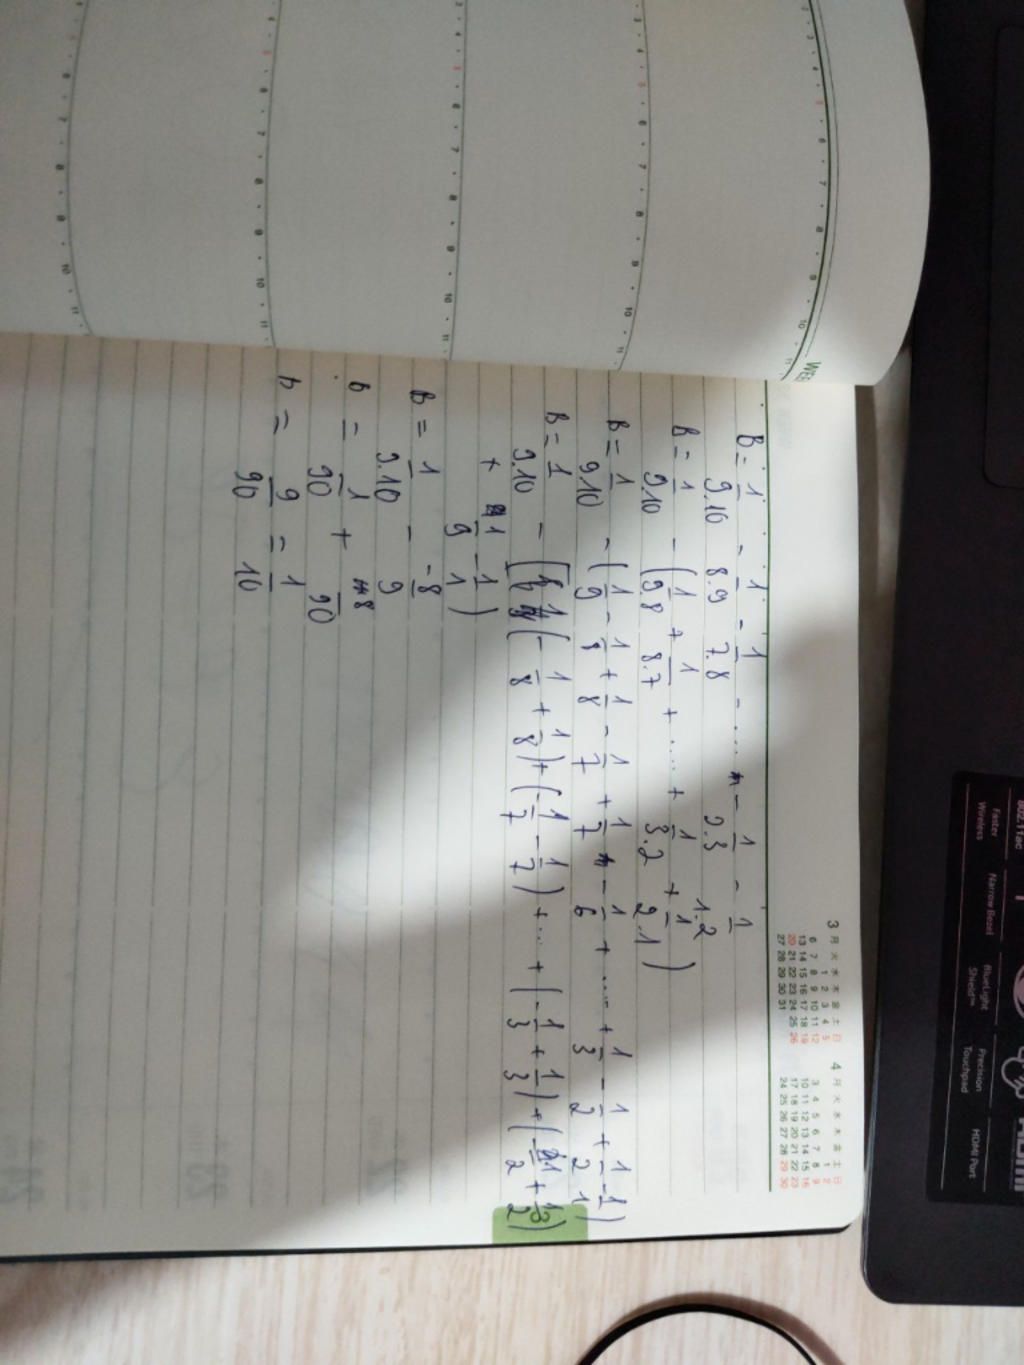 B = 1/9.10 - 1/8.9 - 1/7.8 - .... - 1/2.3 - 1/1.2
B = 1/9.10 - (1/9.8 + 1/8.7 + .... + 1/3.2 + 1/2.1)
B = 1/9.10 - (1/9 - 1/8 + 1/8 - 1/7 + 1/7 - 1/6 + .... + 1/3 - 1/2 + 1/2 - 1/1)
B = 1/9.10 - [(-1/8 + 1/8) + (-1/7 - 1/7) + ... + (-1/3 + 1/3) + (-1/2 + 1/2)
+ 1/9 - 1/1)
B = 1/9.10 - -8/9
B = 1/90 + 8/90
B = 9/90 = 1/10
3 月 火 水 木 金 土 日
1 2 3 4 5
6 7 8 9 10 11 12
13 14 15 16 17 18 19
20 21 22 23 24 25 26
27 28 29 30 31
4 月 火 水 木 金 土 日
1 2
3 4 5 6 7 8 9
10 11 12 13 14 15 16
17 18 19 20 21 22 23
24 25 26 27 28 29 30
802.11ac
Faster
Wireless
Narrow Bezel
BlueLight
Shield™
Precision
Touchpad
HDMI Port